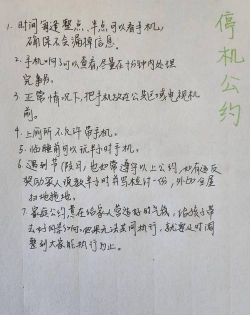 停机公约
1. 时间每逢整点、半点可以看手机,
确保不会漏掉信息。
2. 手机响了可以查看,尽量在十分钟内处理
完事务。
3. 正常情况下,把手机放在公共区域电视机
前。
4. 上厕所不允许带手机。
5. 临睡前可以玩半小时手机。
6. 遇到节假日,也如常遵守以上公约,如有违反
奖励家人说教半小时并写检讨一份,外加全屋
扫地拖地。
7. 家庭公约意在给家人营造好的气氛,给孩子带
去好的影响,如果无法共同执行,就要及时调
整到大家能执行为止。